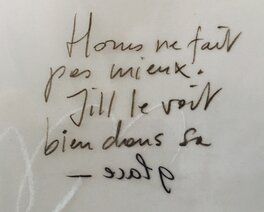 Horus ne fait
pas mieux.
Jill le voit
bien dans sa
glace _